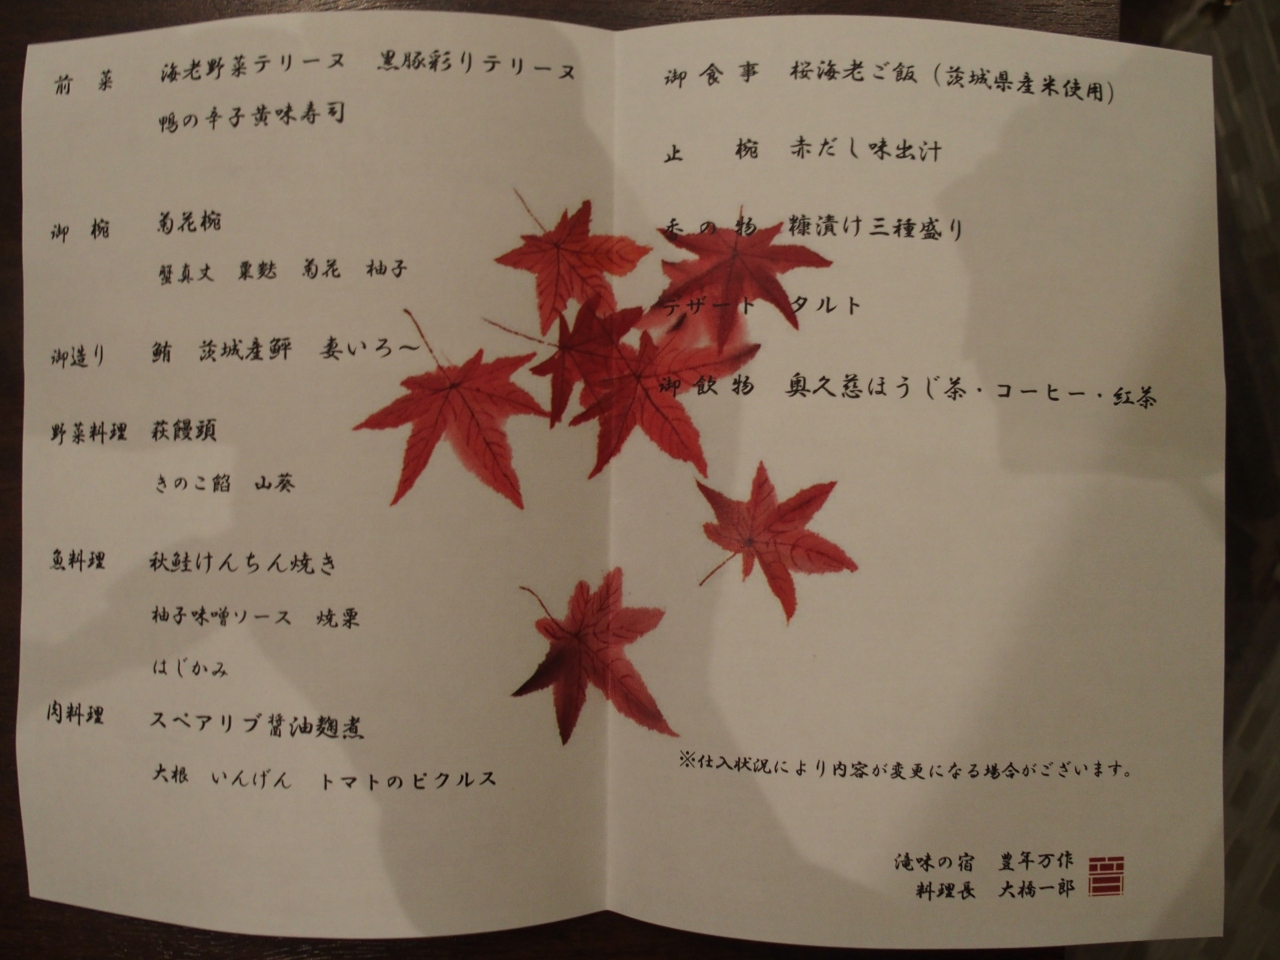 前菜　海老野菜テリーヌ　黒豚彩りテリーヌ
鴨の辛子黄味寿司
御椀　菊花椀
蟹真丈　粟麩　菊花　柚子
御造り　鮪　茨城産鮃　妻いろ〜
野菜料理　萩饅頭
きのこ餡　山葵
魚料理　秋鮭けんちん焼き
柚子味噌ソース　焼栗
はじかみ
肉料理　スペアリブ醤油麹煮
大根　いんげん　トマトのピクルス
御食事　桜海老ご飯（茨城県産米使用）
止椀　赤だし味出汁
香の物　糠漬け三種盛り
デザート　タルト
御飲物　奥久慈ほうじ茶・コーヒー・紅茶
※仕入状況により内容が変更になる場合がございます。
滝味の宿　豊年万作
料理長　大橋一郎